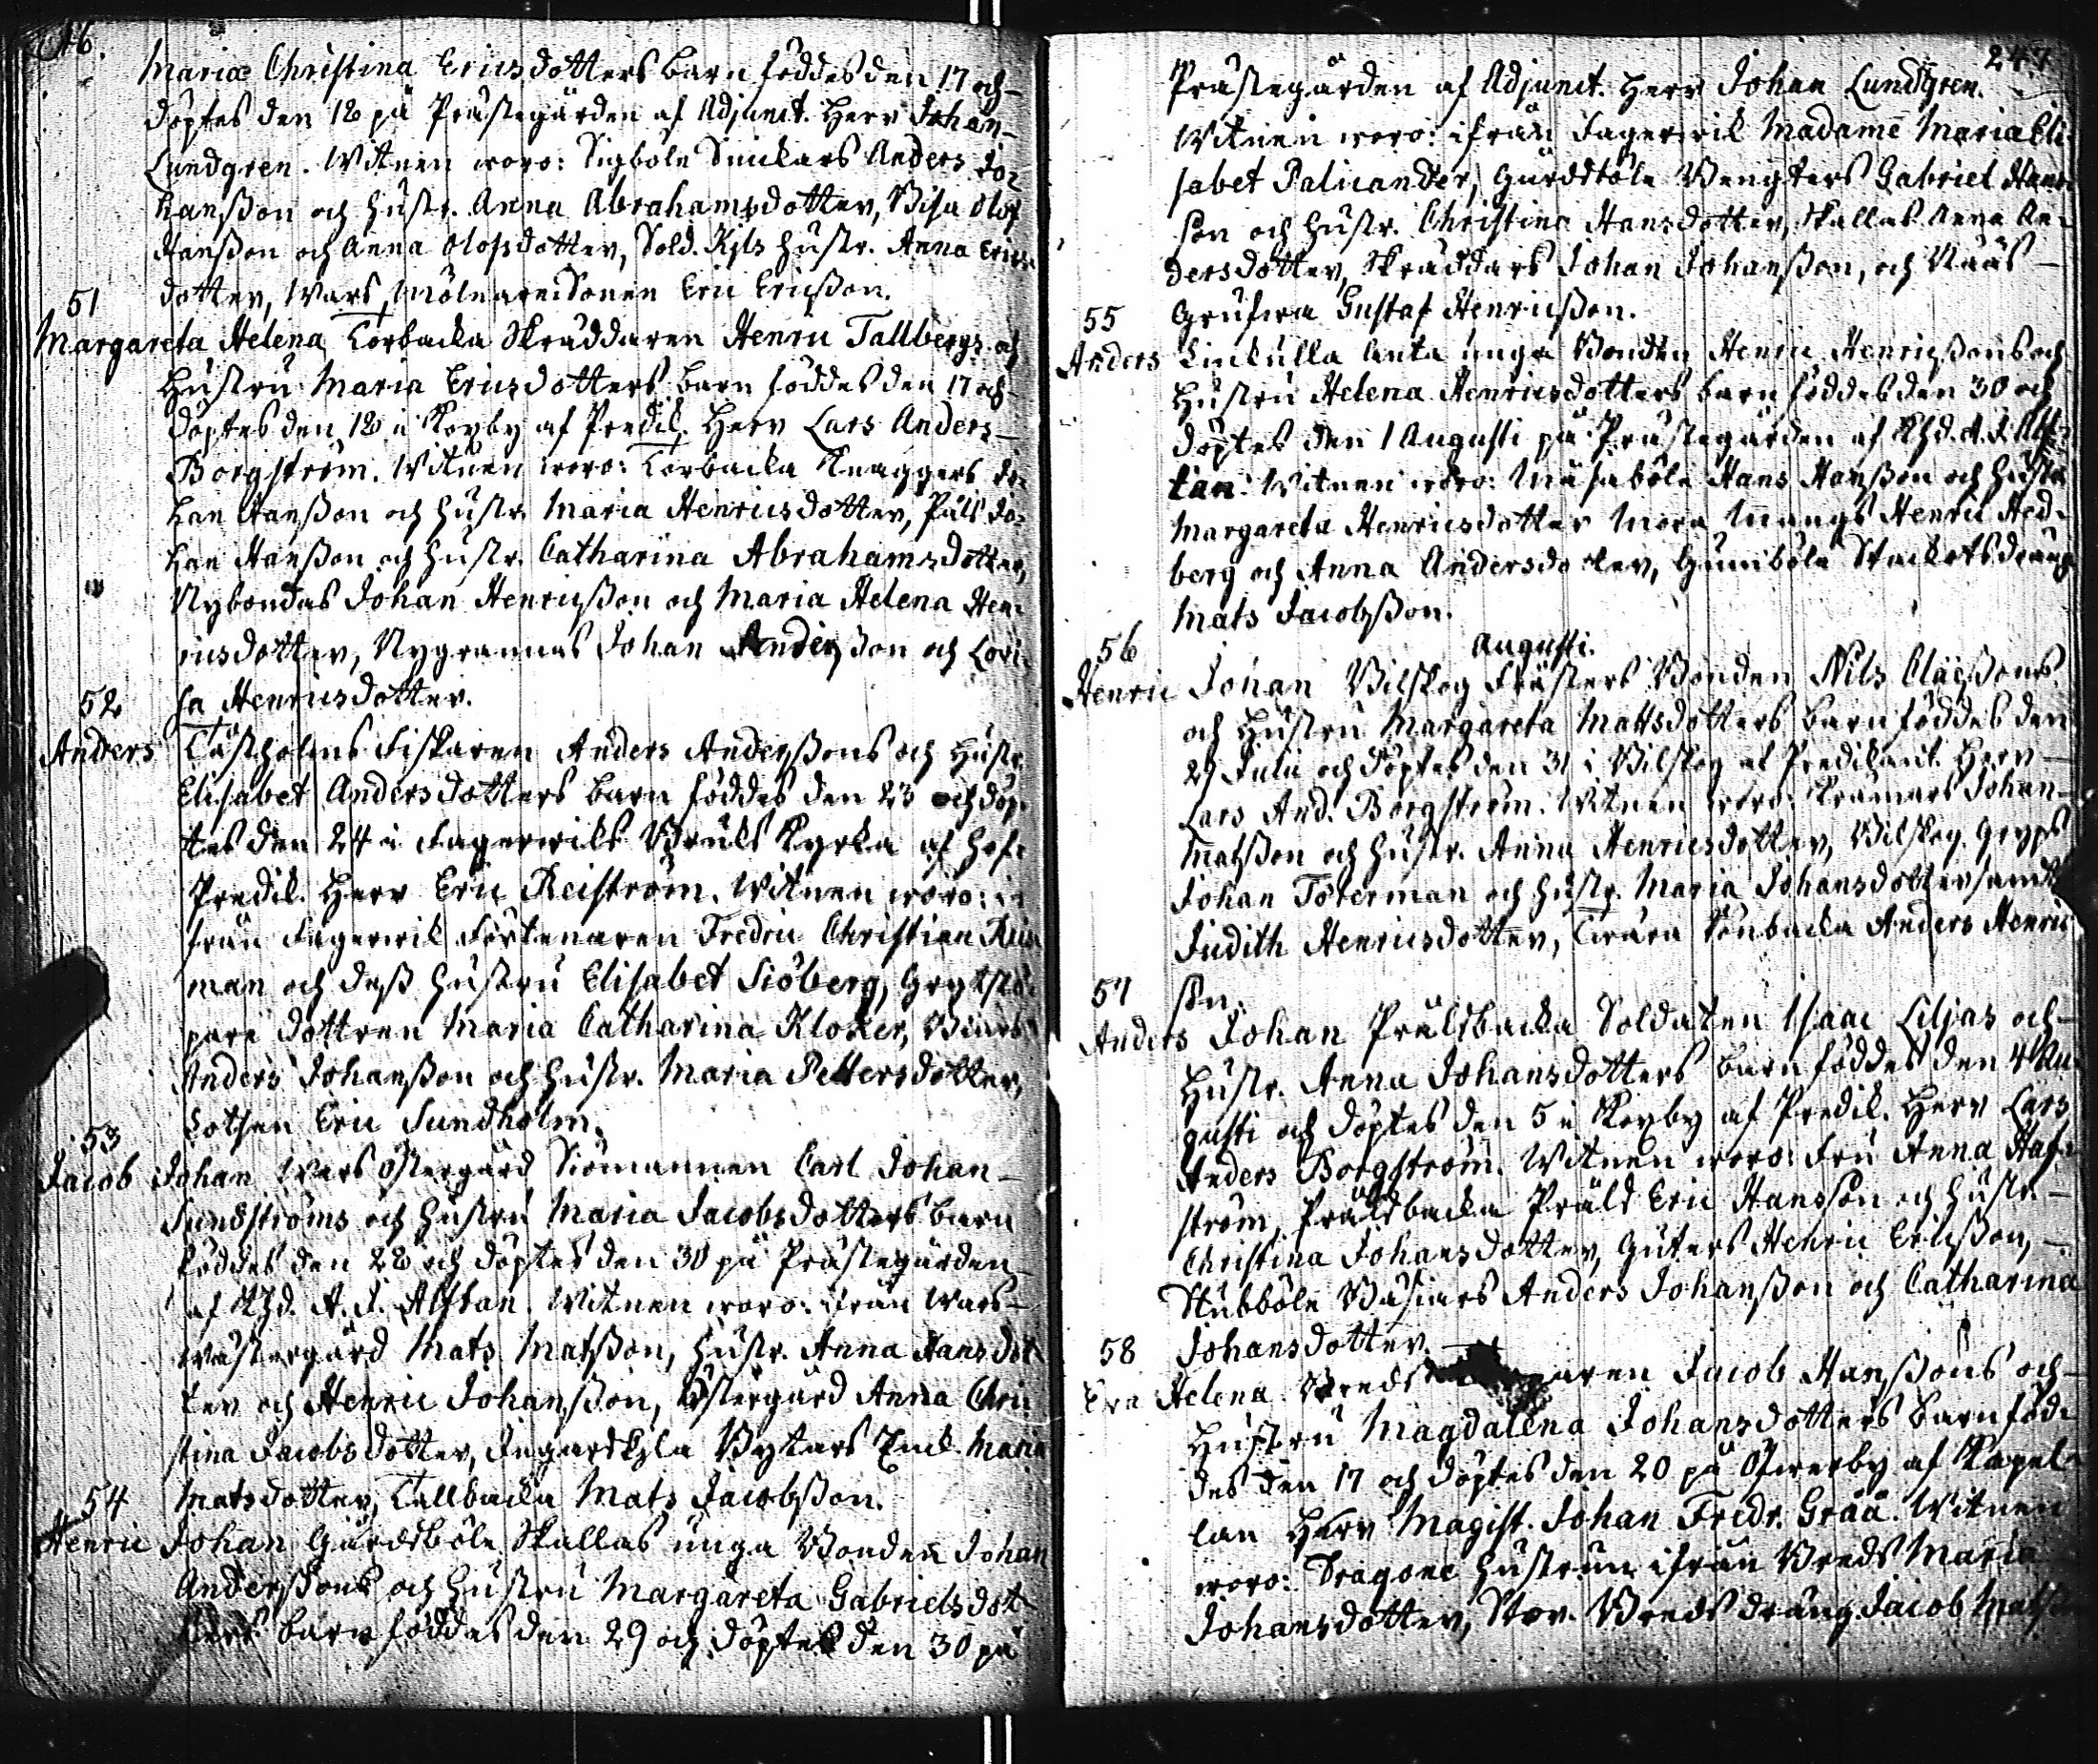 Maria Christina Ericsdotters barn föddes den 17 och
döptes den 18 på Prästegården af Adjunct. Herr Johan
Lundgren. Witnen woro: Sigböle Snickars Anders Jo-
hanßon och hustr. Anna Abrahamsdotter, Olof
Hanßon och Anna Olofsdotter, Sold. hustr. Anna Erics-
dotter, Wars Mölnare Sonen Eric Ericßon.
51
Margareta Helena Torbacka Skräddaren Henric Tallbergs och
Hustru Maria Ericsdotters barn föddes den 17 och
döptes den 18 i Köpby af Predik. Herr Lars Anders
Borgström. Witnen woro: Torbacka Knaggers Jo-
han Hanßon och hustr. Maria Henricsdotter, Påls Jo-
han Hanßon och hustr. Catharina Abrahamsdotter,
Nybondas Johan Henricßon och Maria Helena Hen-
ricsdotter, Nygrannas Johan Anderßon och Lovi-
sa Henricsdotter.
52
Anders Täktholms Fiskaren Anders Anderßons och Hustr.
Elisabet Andersdotters barn föddes den 23 och döp-
tes den 24 i Fagerwiks Bruks Kyrka af Hof-
Predik. Herr Eric Reiström. Witnen woro: i-
från Fagerwik Förtenaren Fredric Christian
man och deß hustru Elisabet Siöberg,
Dottren Maria Catharina Kloker,
Anders Johanßon och hustr. Maria Pettersdotter,
Lotsen Eric Sundholm.
53
Jacob Johan Wars Östergård Siömannen Carl Johan
Sundströms och hustru Maria Jacobsdotters barn
föddes den 28 och döptes den 30 på Prästegården
af Khd. A. J. Alftan. Witnen woro: från Wars
Wästergård Mats Matsßon, hustr. Anna Hansdot-
ter och Henric Johanßon, Östergård Anna Chri-
stina Jacobsdotter, Ingarskila Bytars Enck. Maria
Matsdotter, Tallbacka Mats Jacobßon.
54
Henric Johan Gårdsböle Skallas unga Bonden Johan
Anderßons och Hustru Margareta Gabrielsdot-
ters barn föddes den 29 och döptes den 30 på
247
Prästegården af Adjunct. Herr Johan Lundgren.
Witnen woro: ifrån Fagerwik Madame Maria Eli-
sabet Palicander, Gårdsböle Bengters Gabriel Hans-
son och hustr. Christina Hansdotter, Skallas Anna An-
dersdotter, Skräddars Johan Johanßon, och Nääs
Grufwa Gustaf Henricßon.
55
Anders Linkulla Anta unga Bonden Henric Henricßons och
Hustru Helena Henricsdotters barn föddes den 30 och
döptes den 1 Augusti på Prästegården af Khd. A. J. Alf-
tan. Witnen woro: Måsaböle Hans Hanßon och hustr.
Margareta Henricsdotter Mora Mangs Henric Hed-
berg och Anna Andersdotter, Stackots dräng
Mats Jacobßon.
Augusti.
56
Henric Johan Bilskog Frästers Bonden Nils Claeßons
och Hustru Margareta Mattsdotters barn föddes den
29 Julii och döptes den 31 i Bilskog af Predikant. Herr
Lars And. Borgström. Witnen woro: Kramars Johan
Matsßon och hustr. Anna Henricsdotter, Bilskog. Gryps
Johan Töterman och hustr. Maria Johansdotter samt
Judith Henricsdotter, Anders Henric-
son.
57
Anders Johan Präldbacka Soldaten Isaac Liljas och
Hustr. Anna Johansdotters barn föddes den 4 Au-
gusti och döptes den 5 i Köpby af Predik. Herr Lars
Anders Borgström. Witnen woro: Fru Anna Haf-
ström, Präldbacka Präld Eric Hansson och hustr.
Christina Johansdotter, Guters Henric Ericßon,
Stubböle Anders Johanßon och Catharina
Johansdotter.
58
Eva Helena Breds aren Jacob Hanßons och
Hustru Magdalena Johansdotters barn föd-
des den 17 och döptes den 20 på Öfwerby af Kapel-
lan Herr Magist. Johan Fredr. Grää. Witnen
woro: Dragone Hustrun ifrån Breds Maria
Johansdotter, Stor-Breds dräng Jacob Matsson